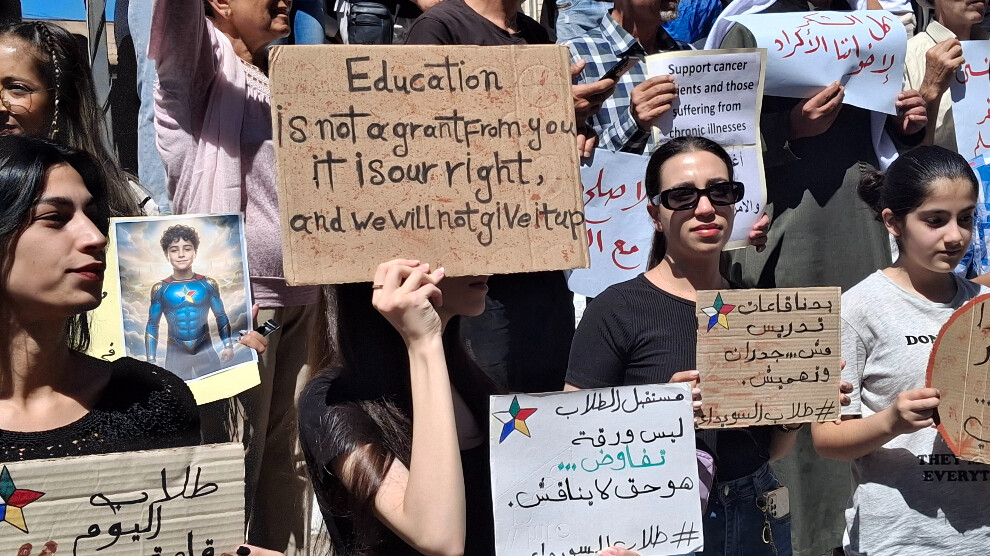 Education
is not a grant from you
it is our right,
and we will not give it up
Support cancer
patients and those
suffering from
chronic illnesses
كل الشكر
لإخوتنا الأكراد
لا صلح
مع
بدنا قاعات
تدريس
مش...جدران
وتهميش.
#طلاب السويداء
مستقبل الطلاب
ليس ورقة
تفاوض...
هو حق لا يناقش.
#طلاب السويداء
طلاب
اليوم
DON
THEY
EVERYT